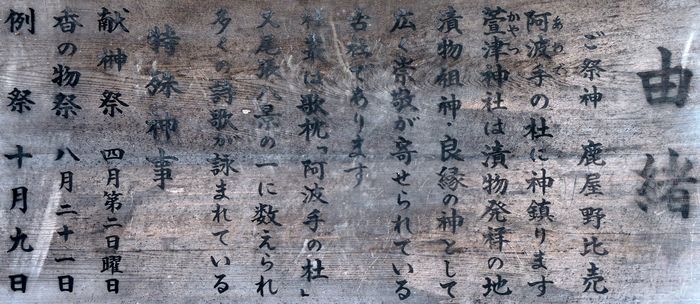 由緒
ご祭神 鹿屋野比売
阿波手の杜に神鎮ります
萱津神社は漬物発祥の地
漬物祖神・良縁の神として
広く崇敬が寄せられている
古社であります
は歌枕「阿波手の杜」
又尾張八景の一に数えられ
多くの詩歌が詠まれている
特殊神事
献神祭 四月第二日曜日
香の物祭 八月二十一日
例祭 十月九日